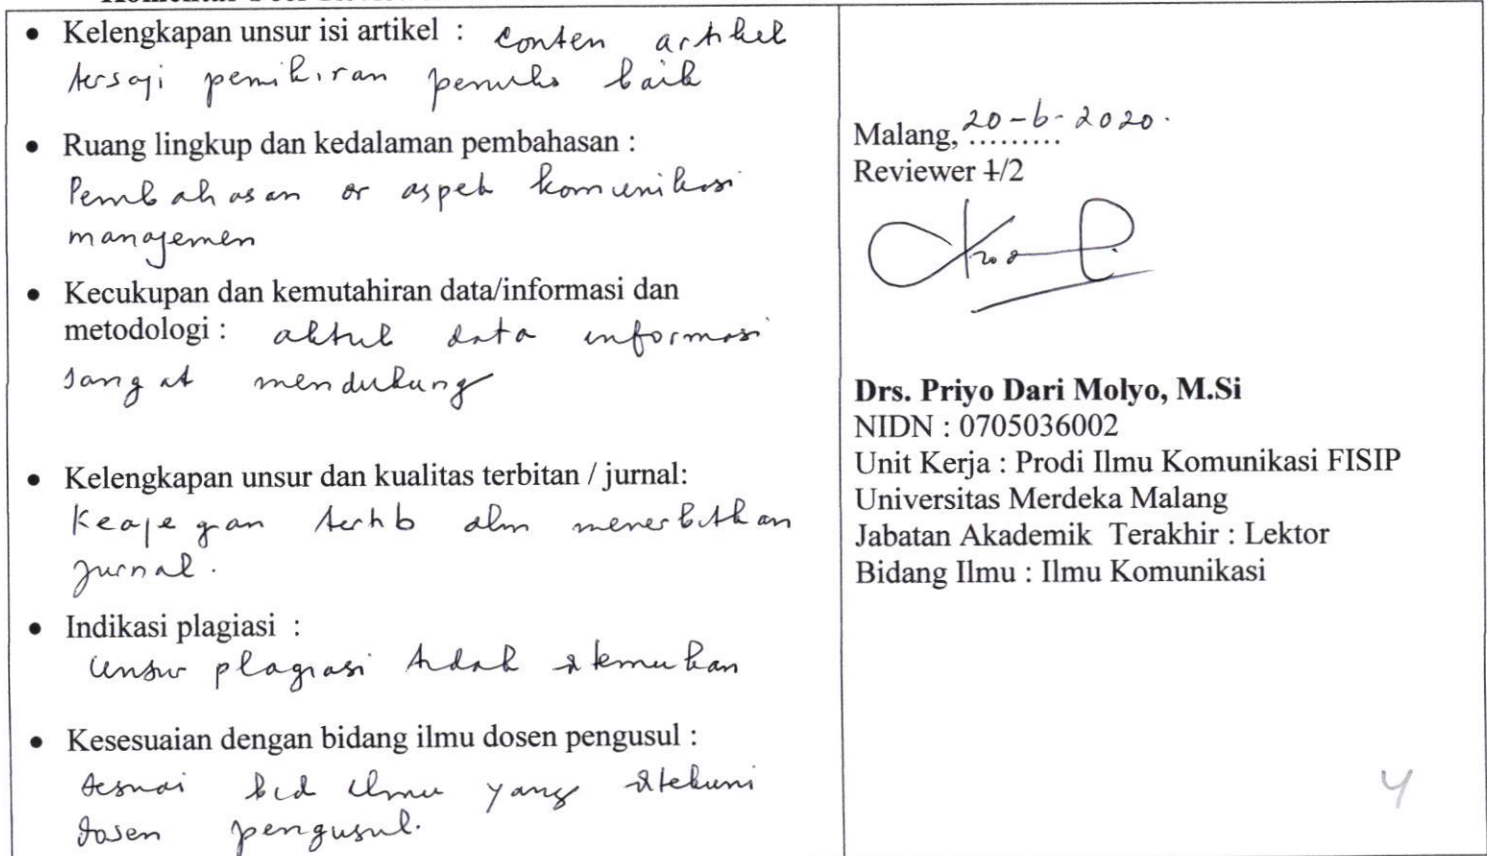 • Kelengkapan unsur isi artikel : conten artikel
tersaji pemikiran penulis baik
• Ruang lingkup dan kedalaman pembahasan :
Pembahasan aspek komunikasi
manajemen
• Kecukupan dan kemutahiran data/informasi dan
metodologi : aktul data informasi
sangat mendukung
• Kelengkapan unsur dan kualitas terbitan / jurnal:
Keajegan dlm menerbitkan
jurnal.
• Indikasi plagiasi :
unsur plagiasi tidak ditemukan
• Kesesuaian dengan bidang ilmu dosen pengusul :
sesuai bid ilmu yang ditekuni
dosen pengusul.
Malang, 20-6-2020.
Reviewer 1/2
Drs. Priyo Dari Molyo, M.Si
NIDN : 0705036002
Unit Kerja : Prodi Ilmu Komunikasi FISIP
Universitas Merdeka Malang
Jabatan Akademik Terakhir : Lektor
Bidang Ilmu : Ilmu Komunikasi
4